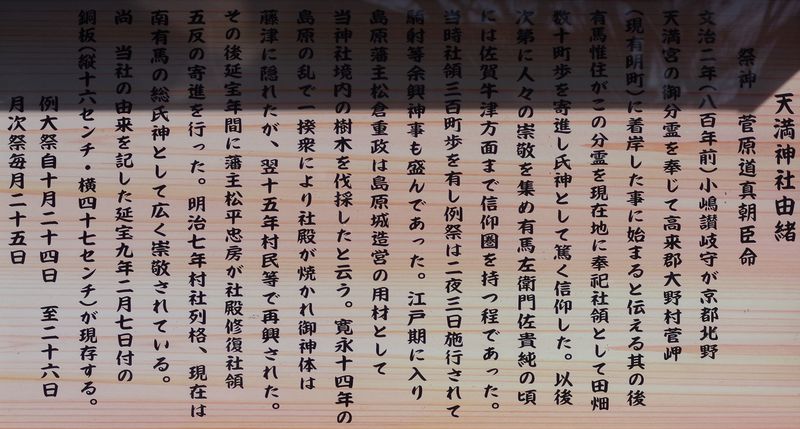 天満神社由緒
祭神　菅原道真朝臣命
文治二年(八百年前)小嶋讃岐守が京都北野
天満宮の御分霊を奉じて高来郡大野村菅岬
(現有明町)に着岸した事に始まると伝える其の後
有馬惟住がこの分霊を現在地に奉祀社領として田畑
数十町歩を寄進し氏神として篤く信仰した。以後
次第に人々の崇敬を集め有馬左衛門佐貴純の頃
には佐賀牛津方面まで信仰圏を持つ程であった。
当時社領三百町歩を有し例祭は二夜三日施行されて
騎射等余興神事も盛んであった。江戸期に入り
島原藩主松倉重政は島原城造営の用材として
当神社境内の樹木を伐採したと云う。寛永十四年の
島原の乱で一揆衆により社殿が焼かれ御神体は
藤津に隠れたが、翌十五年村民等で再興された。
その後延宝年間に藩主松平忠房が社殿修復社領
五反の寄進を行った。明治七年村社列格、現在は
南有馬の総氏神として広く崇敬されている。
尚　当社の由来を記した延宝九年二月七日付の
銅板(縦十六センチ・横四十七センチ)が現存する。
例大祭自十月二十四日　至二十六日
月次祭毎月二十五日